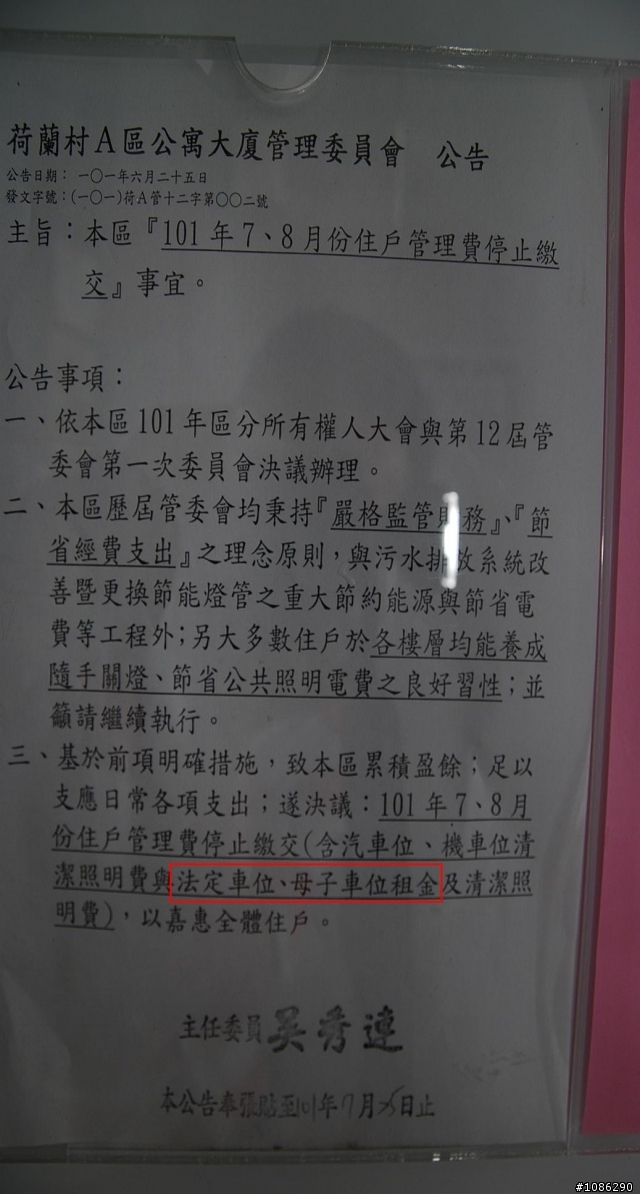 荷蘭村A區公寓大廈管理委員會 公告
公告日期：一〇一年六月二十五日
發文字號：(一〇一)荷A管十二字第〇〇二號
主旨：本區『101年7、8月份住戶管理費停止繳
交』事宜。
公告事項：
一、依本區101年區分所有權人大會與第12屆管
委會第一次委員會決議辦理。
二、本區歷屆管委會均秉持『嚴格監管財務』、『節
省經費支出』之理念原則，與污水排放系統改
善暨更換節能燈管之重大節約能源與節省電
費等工程外；另大多數住戶於各樓層均能養成
隨手關燈、節省公共照明電費之良好習性；並
籲請繼續執行。
三、基於前項明確措施，致本區累積盈餘；足以
支應日常各項支出；遂決議：101年7、8月
份住戶管理費停止繳交(含汽車位、機車位清
潔照明費與法定車位、母子車位租金及清潔照
明費)，以嘉惠全體住戶。
主任委員吳秀連
本公告奉張貼至101年7月 日止
#1086290